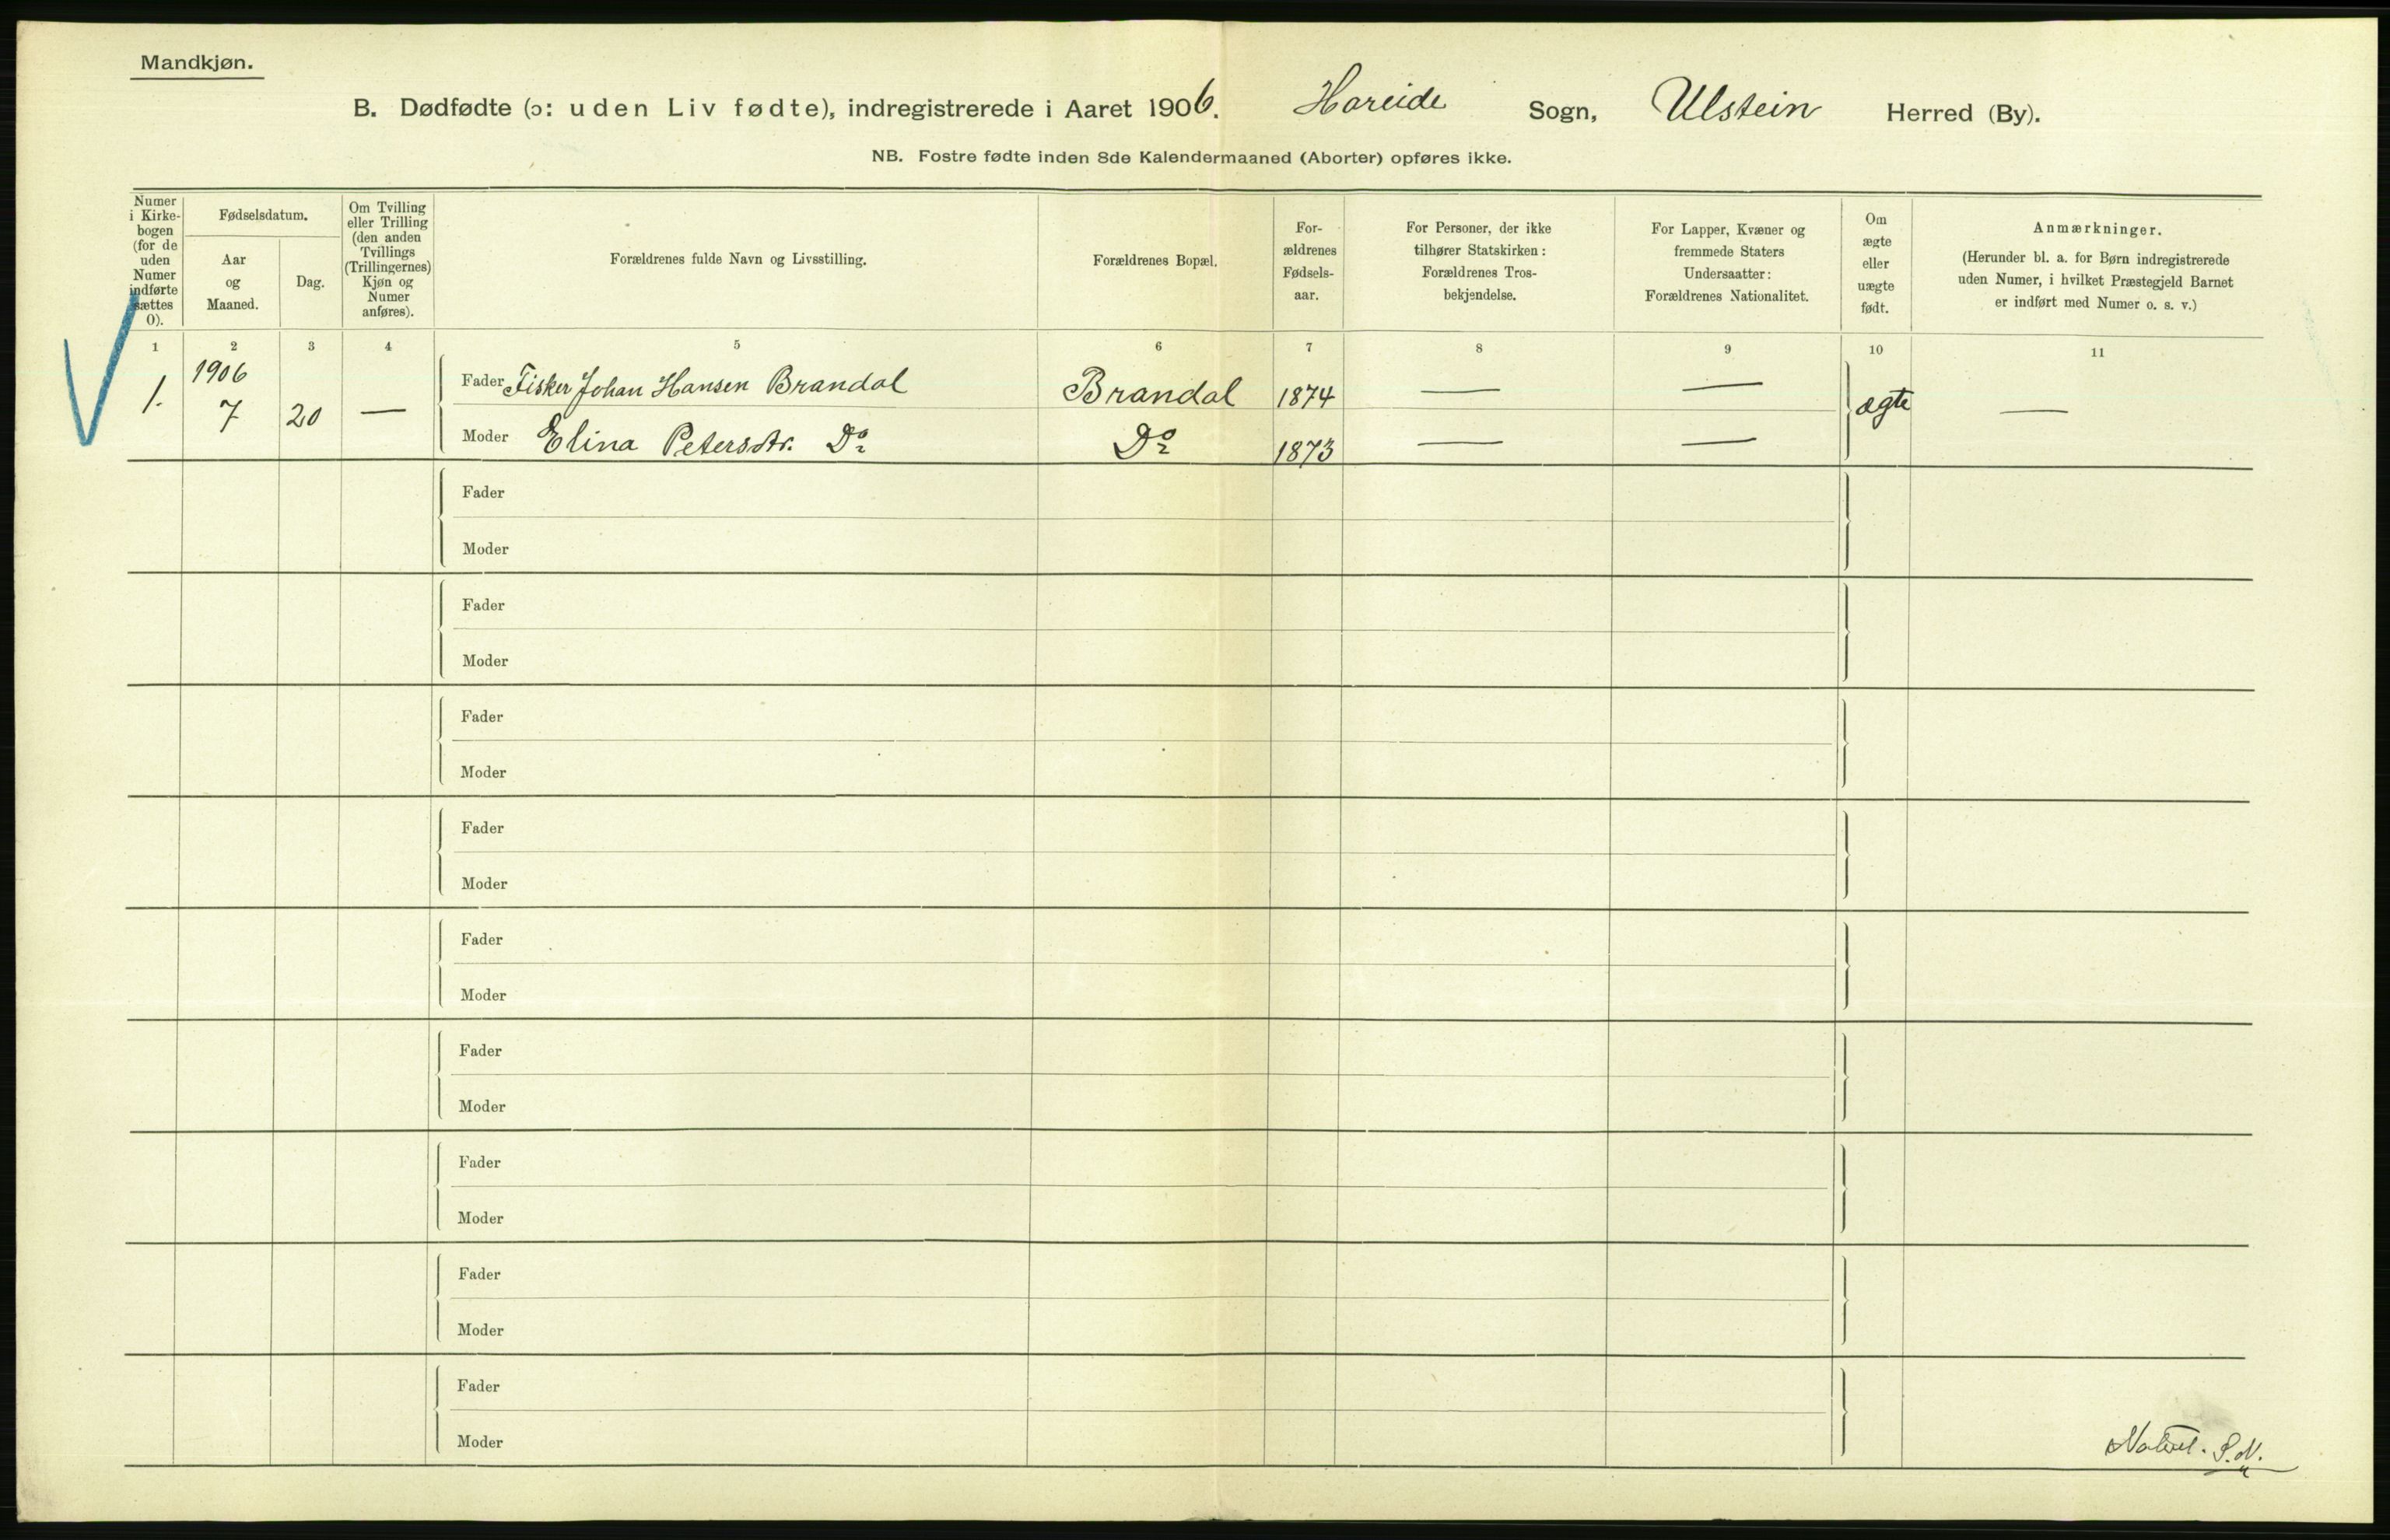 Mandkjøn.
B. Dødfødte (ɔ: uden Liv fødte), indregistrerede i Aaret 1906. Hareide Sogn, Ulstein Herred (By).
NB. Fostre fødte inden 8de Kalendermaaned (Aborter) opføres ikke.
Numer
i Kirke-
bogen
(for de
uden
Numer
indførte
sættes
0).
Fødselsdatum.
Aar
og
Maaned.
Dag.
Om Tvilling
eller Trilling
(den anden
Tvillings
(Trillingernes)
Kjøn og
Numer
anføres).
Forældrenes fulde Navn og Livsstilling.
Forældrenes Bopæl.
For-
ældrenes
Fødsels-
aar.
For Personer, der ikke
tilhører Statskirken:
Forældrenes Tros-
bekjendelse.
For Lapper, Kvæner og
fremmede Staters
Undersaatter:
Forældrenes Nationalitet.
Om
ægte
eller
uægte
født.
Anmærkninger.
(Herunder bl. a. for Børn indregistrerede
uden Numer, i hvilket Præstegjeld Barnet
er indført med Numer o. s. v.)
1 2 3 4 5 6 7 8 9 10 11
1906
Fader Fisker Johan Hansen Brandal Brandal 1874 — —
1. 7 20 — ægte —
Moder Elina Petersdtr. Do Do 1873 — —
Fader
Moder
Fader
Moder
Fader
Moder
Fader
Moder
Fader
Moder
Fader
Moder
Fader
Moder
Fader
Moder
Fader
Moder